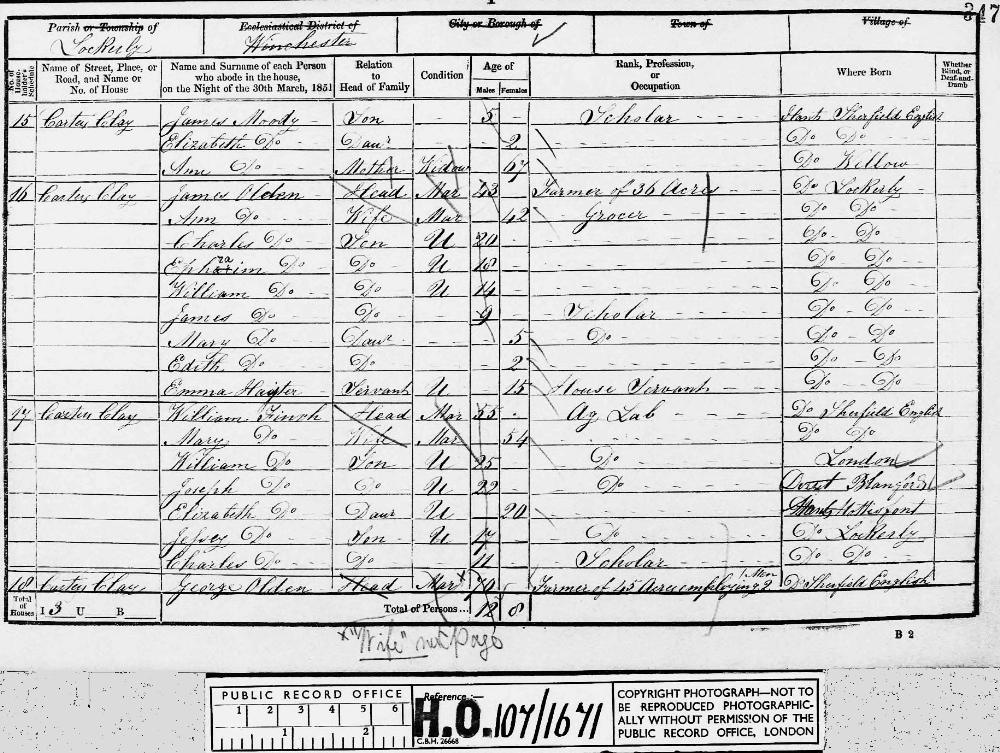 347
Parish or Township of Ecclesiastical District of City or Borough of Town of Village of
Lockerly Winchester
No. of House-holder's Schedule Name of Street, Place, or Road, and Name or No. of House Name and Surname of each Person who abode in the house, on the Night of the 30th March, 1851 Relation to Head of Family Condition Age of Males Females Rank, Profession, or Occupation Where Born Whether Blind, or Deaf-and-Dumb
15 Carters Clay James Moody Son 5 Scholar Hants Sherfield English
Elizabeth Do Daur 2 Do Do
Ann Do Mother Widow 67 Do Wellow
16 Carters Clay James Olden Head Mar 43 Farmer of 36 Acres Do Lockerly
Ann Do Wife Mar 42 Grocer Do Do
Charles Do Son U 20 Do Do
Ephraim Do Do U 18 Do Do
William Do Do U 14 Do Do
James Do Do 9 Scholar Do Do
Mary Do Daur 5 Do Do Do
Edith Do Do 2 Do Do
Emma Hayter Servant U 15 House Servant Do Do
17 Carters Clay William Finch Head Mar 55 Ag Lab Do Sherfield English
Mary Do Wife Mar 54 Do Do
William Do Son U 25 Do London
Joseph Do Do U 22 Do Dorset Blanford
Elizabeth Do Daur U 20 Hants Mottisfont
Do Son U 17 Do Do Lockerly
Charles Do Do 11 Scholar Do Do
18 Carters Clay George Olden Head Mar 70 Farmer of 45 Acres employing 2 Men Do Sherfield English
Total of Houses I 3 U B Total of Persons... 12 8
x "Wife" next page
B 2
PUBLIC RECORD OFFICE
1 2 3 4 5 6
1 2
Reference :—
H.O. 107/1671
C.B.H. 26668
COPYRIGHT PHOTOGRAPH—NOT TO
BE REPRODUCED PHOTOGRAPHIC-
ALLY WITHOUT PERMISSION OF THE
PUBLIC RECORD OFFICE, LONDON